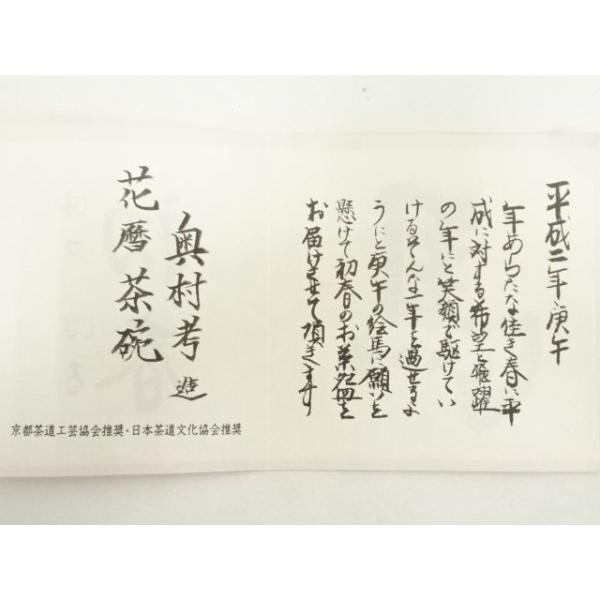 平成二年庚午
年あらたな佳き春に平
成に対する希望と飛躍
の年にと笑顔で駆けてい
けるそんな一年を過せるよ
うにと庚午の絵馬に願いを
懸けて初春のお茶盌を
お届けさせて頂きます
奥村考造
花暦茶碗
京都茶道工芸協会推奨・日本茶道文化協会推奨